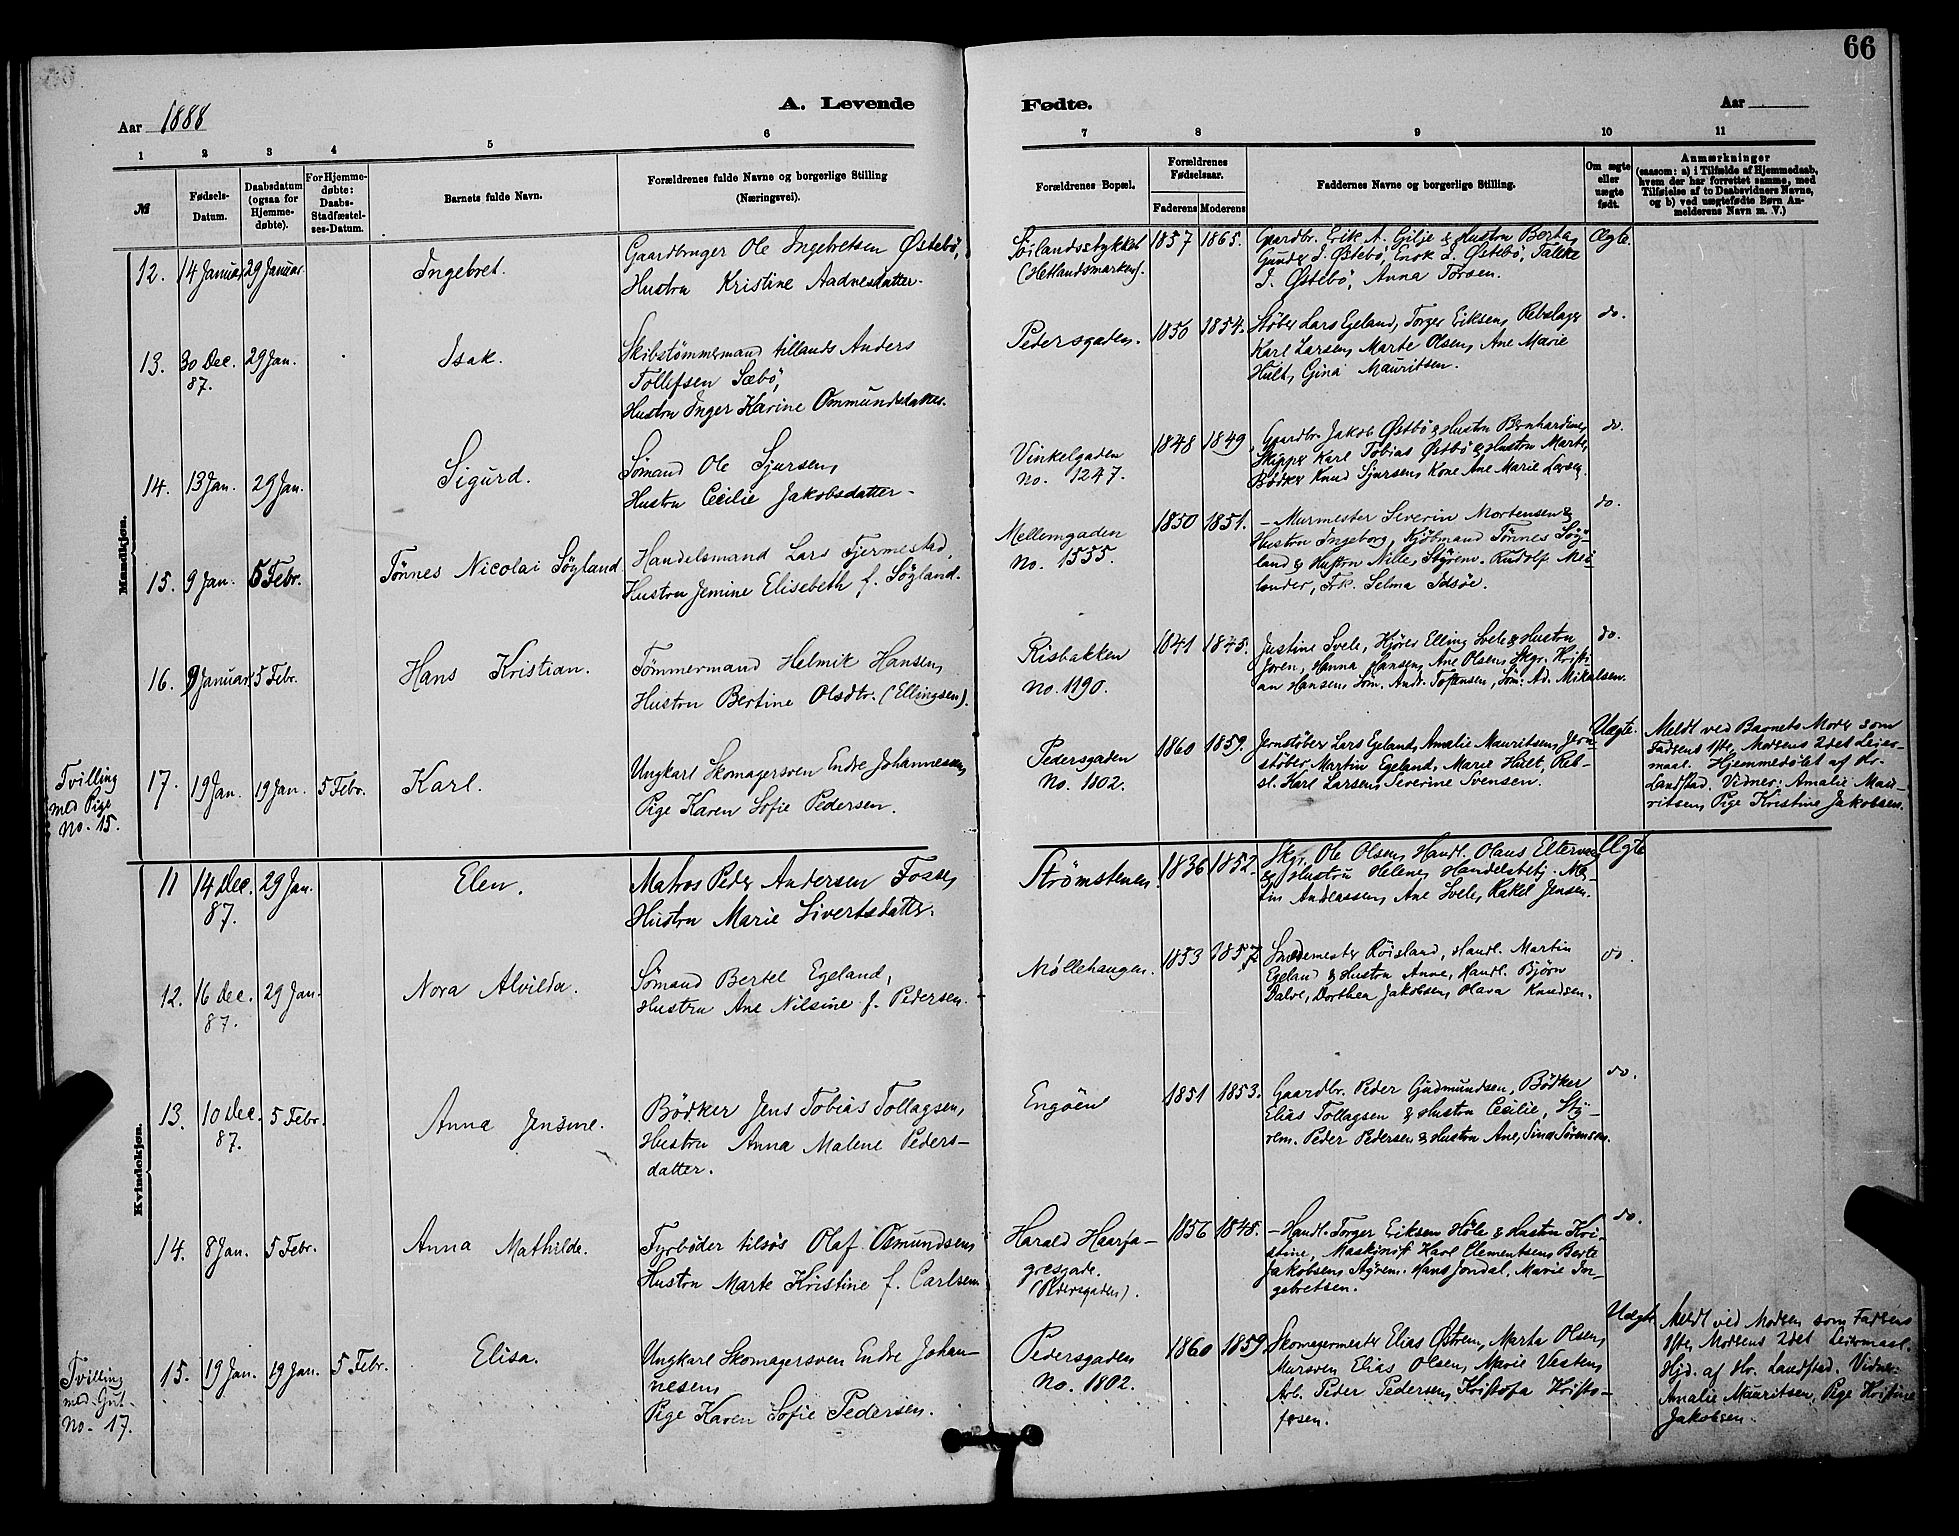 66
Aar 1888
A. Levende
Fødte.
Aar
1 2 3 4 5 6 7 8 9 10 11
№
Fødsels-
Datum.
Daabsdatum
(ogsaa for
Hjemme-
døbte).
For Hjemme-
døbte:
Daabs-
Stadfæstel-
ses-Datum.
Barnets fulde Navn.
Forældrenes fulde Navne og borgerlige Stilling
(Næringsvei).
Forældrenes Bopæl.
Forældrenes
Fødselsaar.
Faderens Moderens
Faddernes Navne og borgerlige Stilling.
Om ægte
eller
uægte
født.
Anmærkninger
(saasom: a) i Tilfælde af Hjemmedaab,
hvem der har forrettet samme, med
Tilføielse af to Daabsvidners Navne,
og b) ved uægtefødte Børn An-
melderens Navn m. V.)
Mandkjøn.
12. 14 Januar 29 Januar. Ingebret.
Gaardbruger Ole Ingebretsen Østebö,
Hustru Kristine Aadnesdatter.
Söilandsstykket
(Hetlandsmarken).
1857 1865.
Gaardbr. Erik A. Gilje & Hustru Berta,
Gunder I. Østebö, Enok I. Østebö, Talette
I. Østebö, Anna Torsen.
Ægte.
13. 30 Dec. 29 Jan. Isak.
87.
Skibstömmermand tillands Anders
Tollefsen Sæbö,
Hustru Inger Karine Ommundsdatter.
Pedersgaden. 1850 1854.
Støber Lars Egeland, Torger Eiksen, Rebslager
Karl Larsen, Marte Olsen, Ane Marie
Hult, Gina Mauritsen.
do.
14. 13 Jan. 29 Jan. Sigurd.
Sömand Ole Sjursen,
Hustru Cecilie Jakobsdatter.
Vinkelgaden
No. 1247.
1848 1849
Gaardbr. Jakob Østbö & Hustru Bernhardine,
Skipper Karl Tobias Østbö & Hustru Marte,
Bödker Knud Sjursen, Kone Ane Marie Larsen.
do.
15. 9 Jan. 5 Febr. Tönnes Nicolai Sögland.
Handelsmand Lars Tjermestad,
Hustru Jemine Elisebeth f. Sögland.
Mellemgaden
No. 1555.
1850 1851.
- Murmester Severin Mortensen &
Hustru Ingeborg, Kjöbmand Tönnes Sög-
land & Hustru Nille, Styrm. Rudolf Me-
lander, Frk. Selma Idsöe.
do.
16. 9 Januar 5 Febr. Hans Kristian.
Tömmermand Helmik Hansen,
Hustru Bertine Olsdtr. (Ellingsen).
Risbakken
No. 1190.
1841 1845.
Justine Svele, Kjörer Elling Svele & Hustru
Joren, Hanna Hansen, Ane Olsen, Skgr. Kristi-
an Hansen, Söm. Andr. Toftensen, Söm. Ad. Mikalsen.
do.
Tvilling
med Pige
No. 15.
17. 19 Jan. 19 Jan. 5 Febr. Karl.
Ungkarl Skomagersven Endre Johannesen,
Pige Karen Sofie Pedersen.
Pedersgaden
No. 1802.
1860 1859.
Jernstøber Lars Egeland, Amalie Mauritsen, Jern-
støber Martin Egeland, Marie Hult, Reb-
sl. Karl Larsen, Severine Svensen.
Uægte.
Meldt ved Barnets Moder som
Faderens 1ste, Moderens 2det Leier-
maal. Hjemmedöbt af Hr.
Landstad. Vidner: Amalie Mau-
ritsen, Pige Kristine Jakobsen.
Kvindekjøn.
11 14 Dec. 29 Jan. Elen.
87.
Matros Peder Andersen Fosse,
Hustru Marie Sivertsdatter.
Strømstenen. 1836 1852.
Skgr. Ole Olsen, Handl. Olaus Eltervaag
& Hustru Helene, Handelsbetj. Mar-
tin Andreassen, Ane Svele, Rakel Jensen.
Ægte
12. 16 Dec. 29 Jan. Nora Alvilda.
87.
Sömand Bertel Egeland,
Hustru Ane Nilsine f. Pedersen.
Møllehaugen. 1853 1857
Smedemester Röisland, Handl. Martin
Egeland & Hustru Anne, Handl. Bjørn
Dalve, Dorthea Jakobsen, Olava Knudsen.
do.
13. 10 Dec. 5 Febr. Anna Jensine.
87.
Bödker Jens Tobias Tollagsen,
Hustru Anna Malene Peders-
datter.
Engöen 1851 1853.
Gaardbr. Peder Gudmundsen, Bödker
Elias Tollagsen & Hustru Cecilie, Sty-
rm. Peder Pedersen & Hustru Ane, Sina Sörensen.
do.
14. 8 Jan. 5 Febr. Anna Mathilde.
Fyrböder tilsös Olaf Osmundsen,
Hustru Marte Kristine f. Carlsen.
Harald Haarfa-
gresgade.
(Pedersgaden).
1856 1848.
- Handl. Torger Eiksen Höle & Hustru Kri-
stine, Maskinist Karl Clementsen, Berte
Jakobsen, Styrm. Hans Jondal, Marie In-
gebretsen.
do.
Tvilling
med Gut
No. 17.
15. 19 Jan. 19 Jan. 5 Febr. Elisa.
Ungkarl Skomagersven Endre Johan-
nesen,
Pige Karen Sofie Pedersen.
Pedersgaden
No. 1802.
1860 1859
Skomagermester Elias Østrem, Marta Olsen,
Mursven Elias Olsen, Marie Vasten,
Arb. Peder Pedersen, Kristofa Kristo-
fersen.
Uægte
Meldt ved Moderen som Faderens
1ste, Moderens 2det Leiermaal.
Hjd. af Hr. Landstad. Vidner:
Amalie Mauritsen, Pige Kristine
Jakobsen.